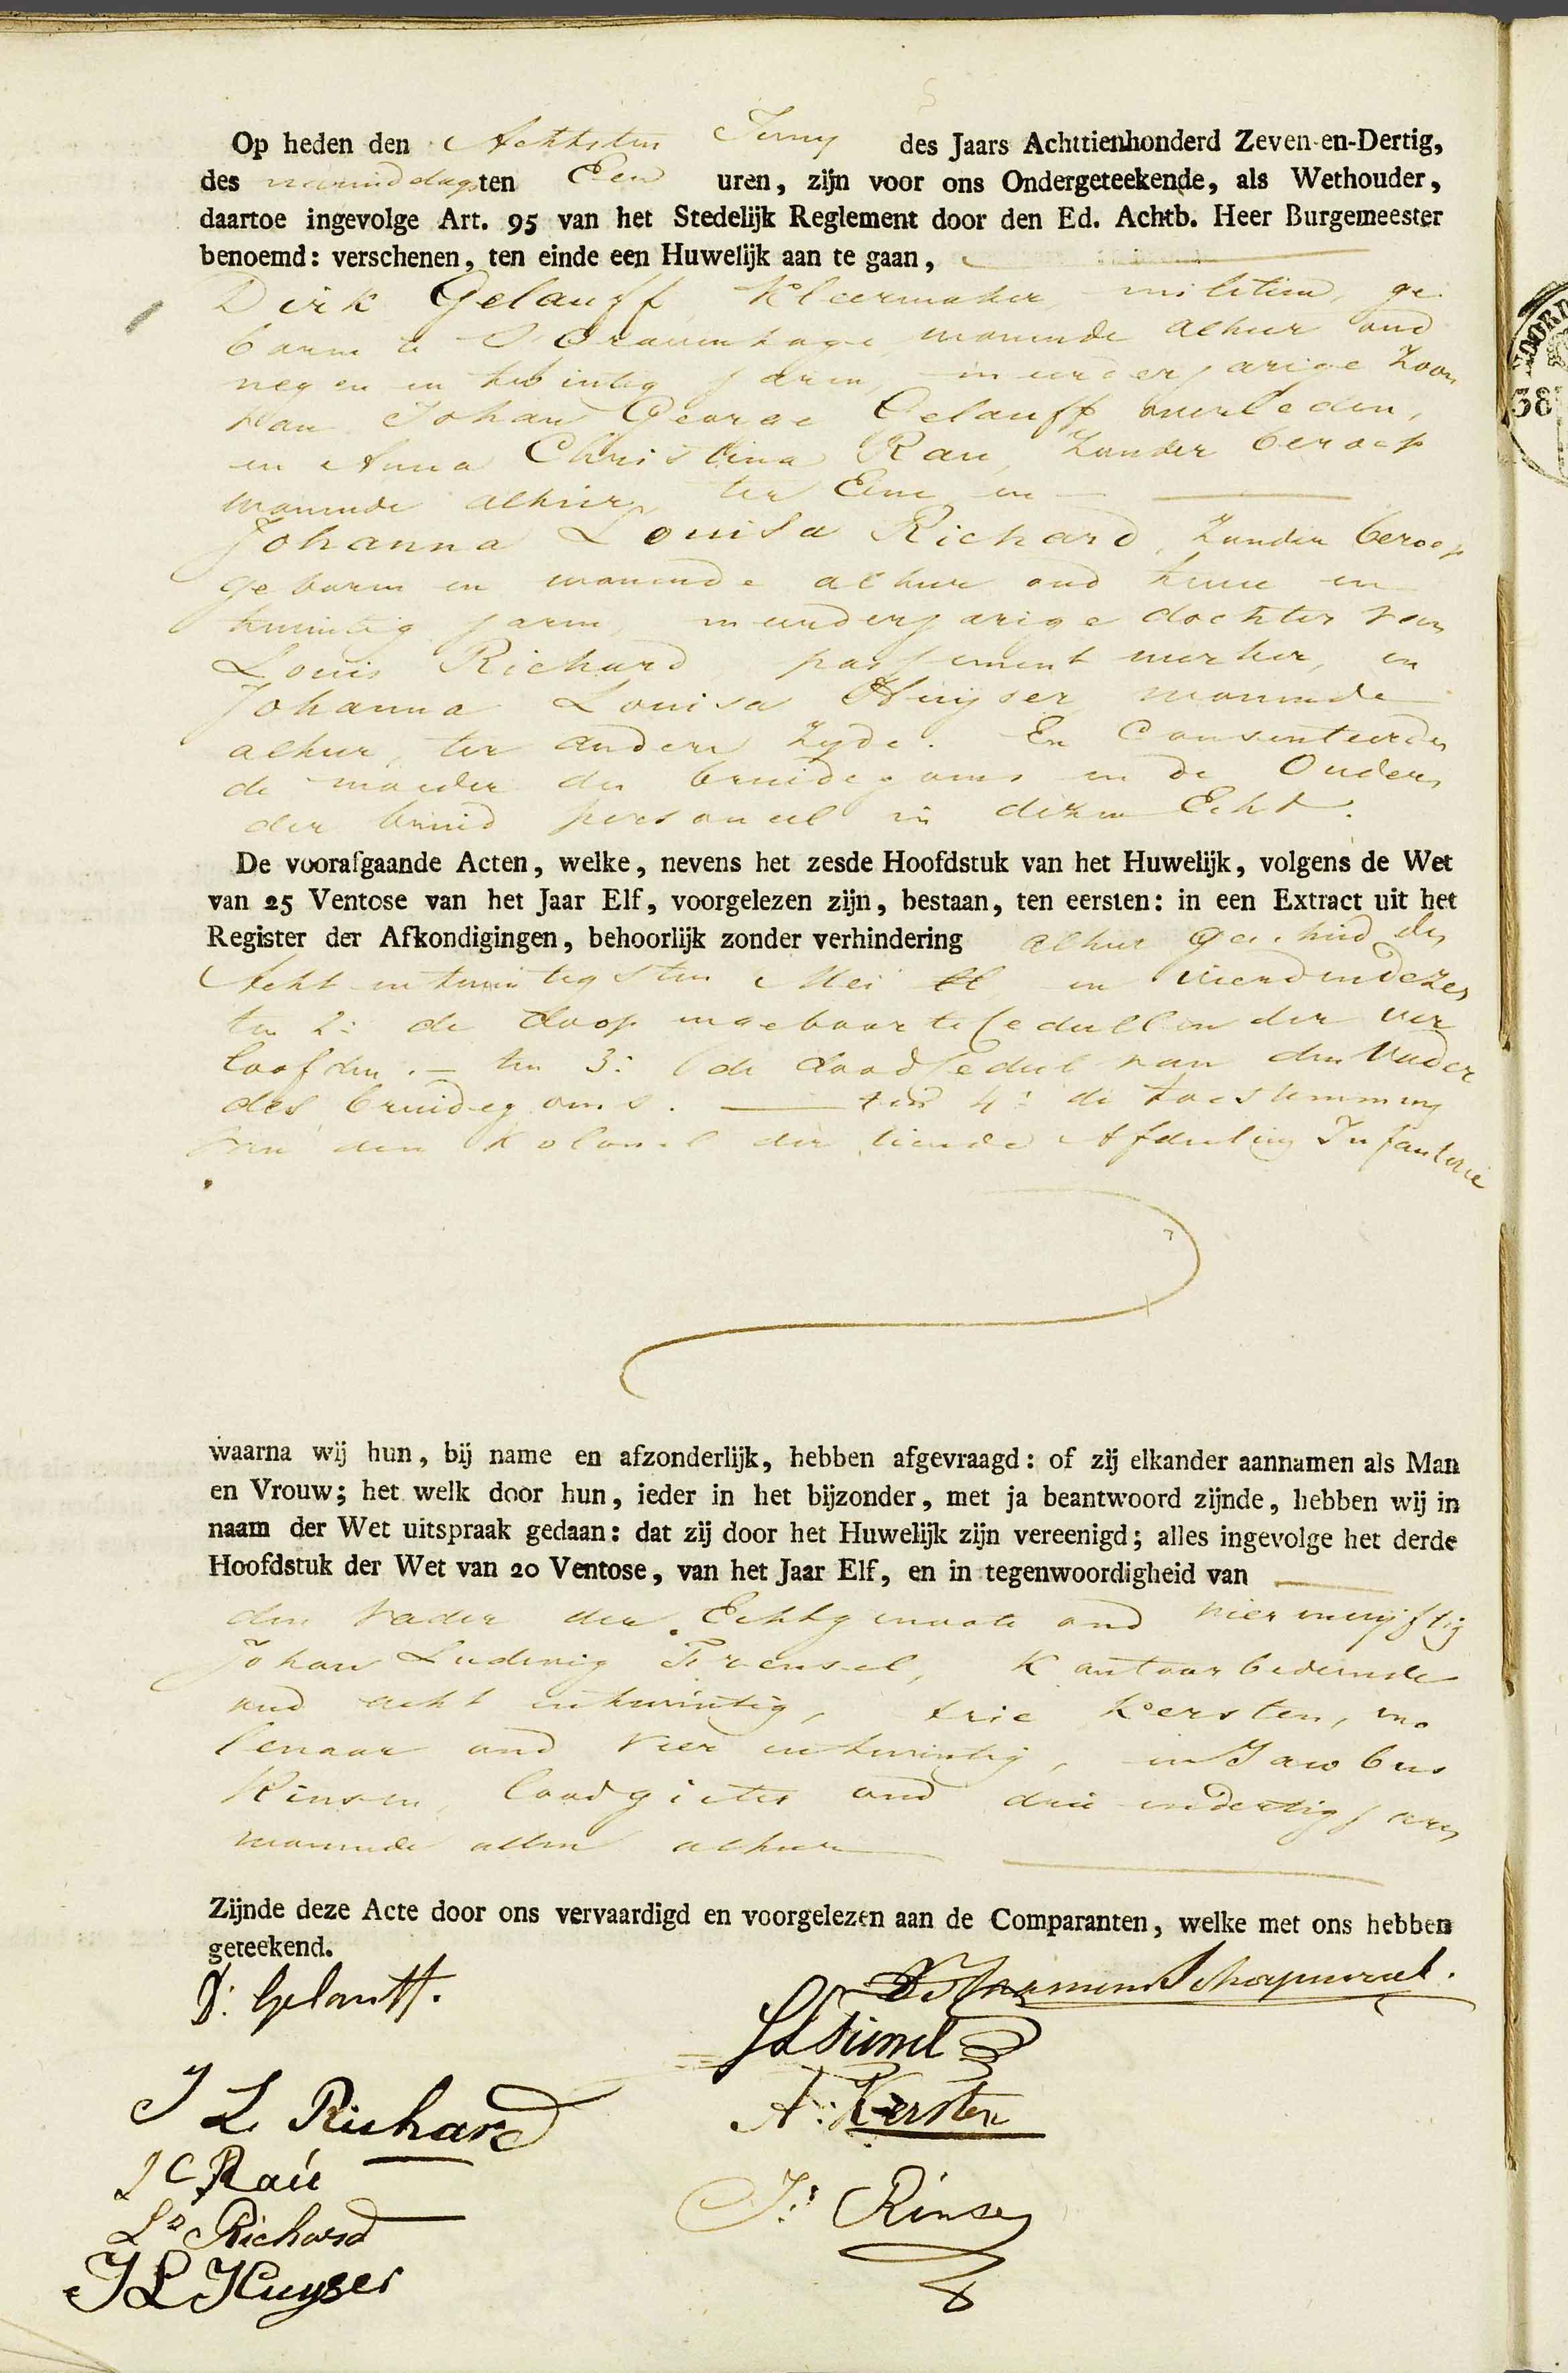 Op heden den Achtsten Juny des Jaars Achttienhonderd Zeven-en-Dertig,
des namiddags ten Een uren, zijn voor ons Ondergeteekende, als Wethouder,
daartoe ingevolge Art. 95 van het Stedelijk Reglement door den Ed. Achtb. Heer Burgemeester
benoemd: verschenen, ten einde een Huwelijk aan te gaan,
Dirk Gelauff Kleermaker militien, ge
boren te S Gravenhage, wonende alhier oud
negen en twintig jaren, meerderjarige Zoon
van Johan George Gelauff overleden,
en Anna Christina Rau, Zonder beroep
wonende alhier, ter Eene en
Johanna Louisa Richard, Zonder beroep
geboren en wonende alhier oud twee en
twintig jaren, meerderjarige dochter van
Louis Richard passement werker, en
Johanna Louisa Huijser wonende
alhier, ter andere Zyde. En Consenteerden
de moeder des bruidegoms en de Ouders
der bruid personeel in dezen Echt.
De voorafgaande Acten, welke, nevens het zesde Hoofdstuk van het Huwelijk, volgens de Wet
van 25 Ventose van het Jaar Elf, voorgelezen zijn, bestaan, ten eersten: in een Extract uit het
Register der Afkondigingen, behoorlijk zonder verhindering alhier geschied den
Acht en twintigsten Mei ll en vierden dezer
ten 2: de doop en geboorte cedullen der ver
loofden. — ten 3: de dood cedul van den Vader
des bruidegoms. — ten 4: de toestemming
van den Kolonel der tiende Afdeeling Infanterie
waarna wij hun, bij name en afzonderlijk, hebben afgevraagd: of zij elkander aannamen als Man
en Vrouw; het welk door hun, ieder in het bijzonder, met ja beantwoord zijnde, hebben wij in
naam der Wet uitspraak gedaan: dat zij door het Huwelijk zijn vereenigd; alles ingevolge het derde
Hoofdstuk der Wet van 20 Ventose, van het Jaar Elf, en in tegenwoordigheid van
den Vader der Echtgenoote oud vier en vijftig
Johan Ludewig, Kantoorbediende
oud acht en twintig, Kersten, mo
lenaar oud vier en twintig, en Jacobus
Rinsen, loodgieter oud drie en dertig jaren
wonende allen alhier
Zijnde deze Acte door ons vervaardigd en voorgelezen aan de Comparanten, welke met ons hebben
geteekend.
D: Gelauff.
J L Richard
C Rau
Ls Richard
J L Huyser
A: Kersten
J: Rinsen
38